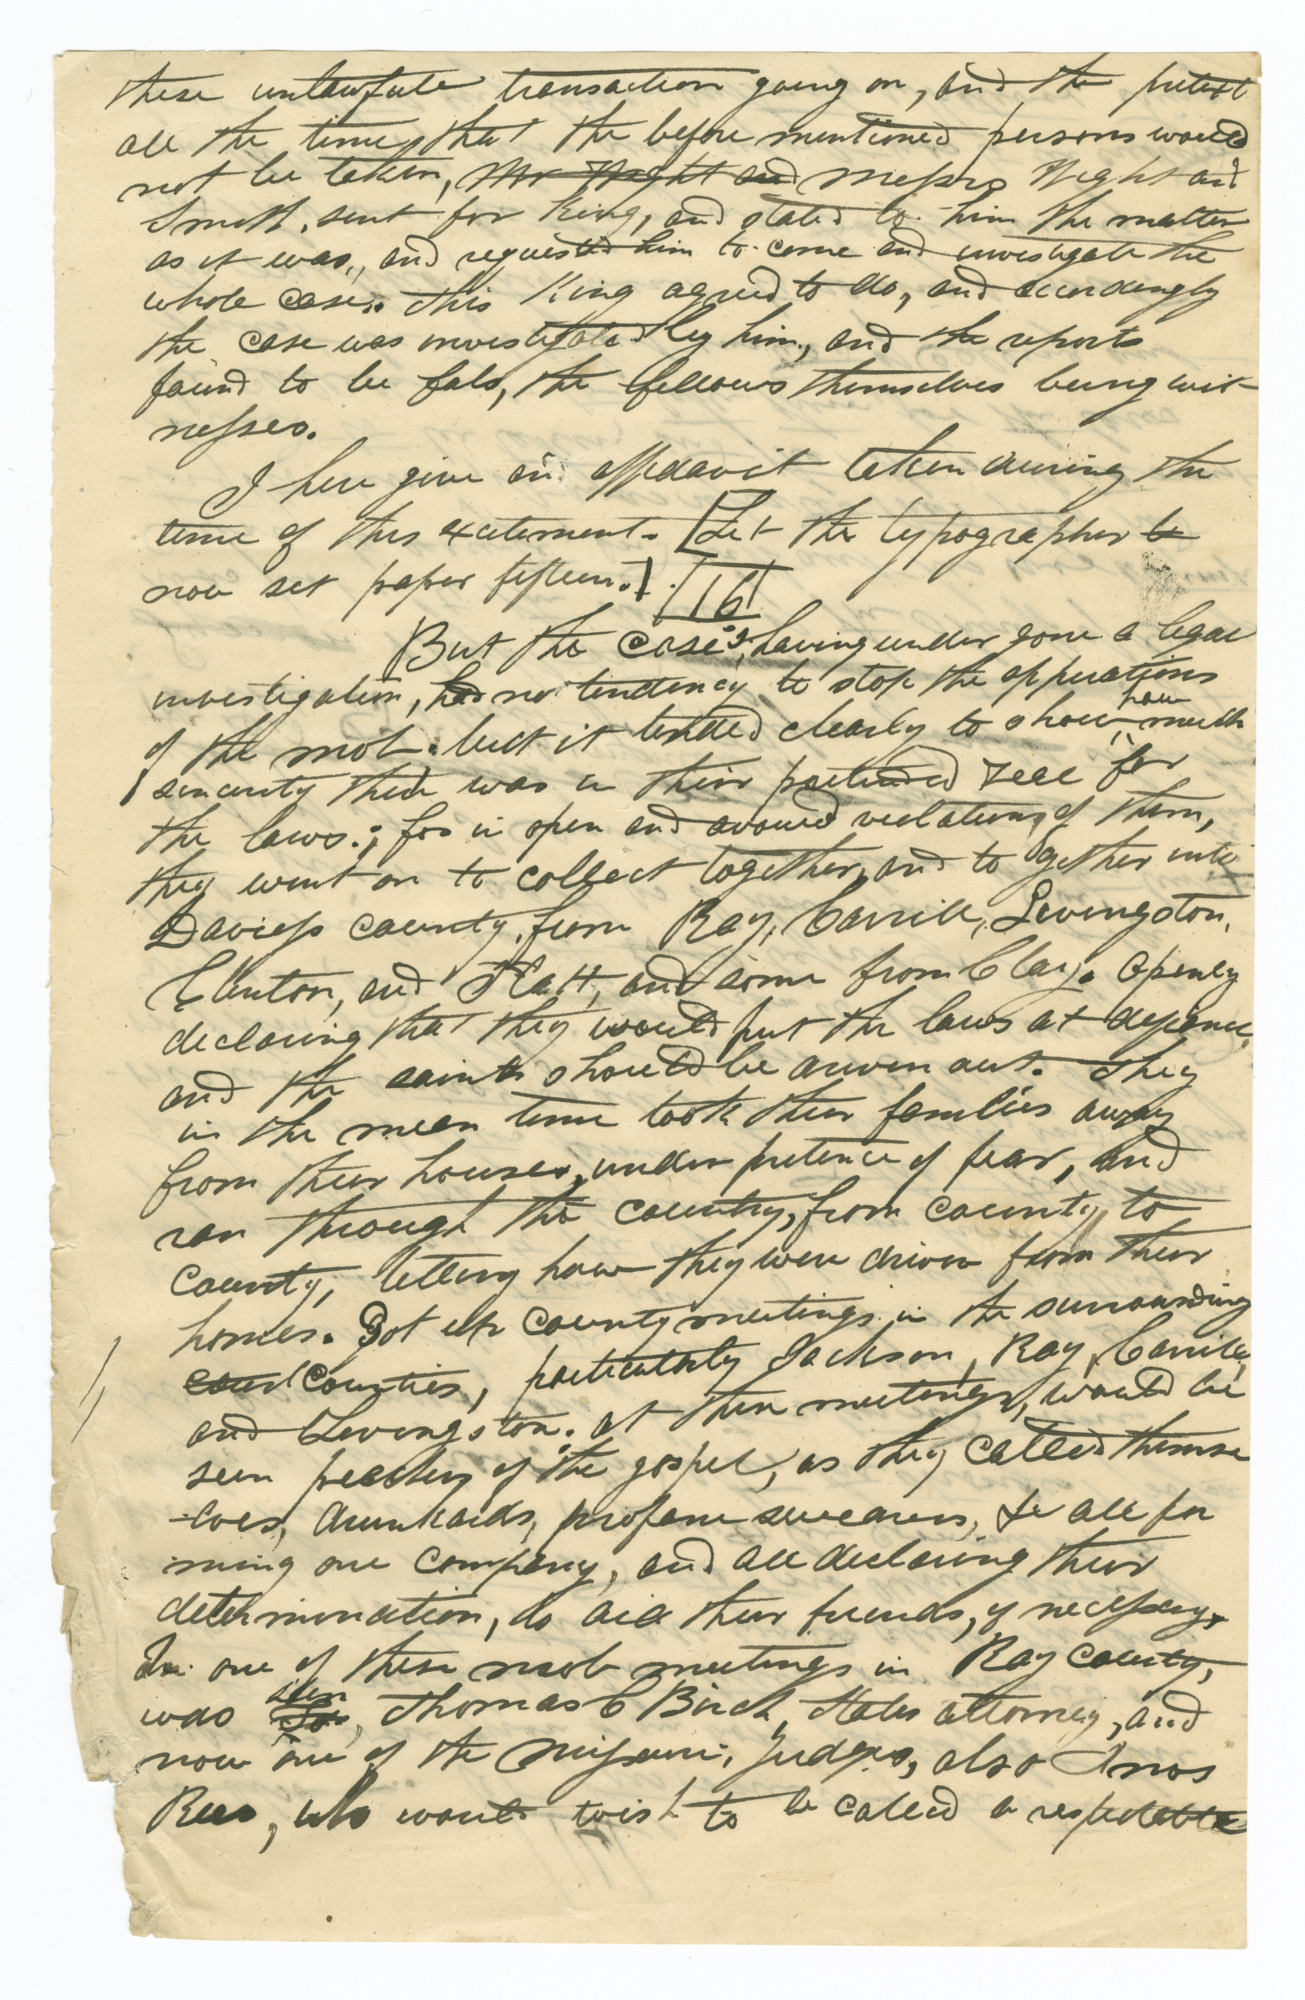 these unlawfule transaction going on, and the pretext
all the time, that the before mentioned persons would
not be taken, Mr Wight and messrs Wight and
Smith, sent for King, and stated to him the matter
as it was, and requested him to come and investigate the
whole case. This King agreed to do, and accordingly
the case was investigated by him, and the reports
faind to be fals, the fellows themselves being wit-
nesses.
I here give an affidavit taken during the
time of this excitement. [Let the typographer
now set paper fifteen.] 16
But the case's, having under gone a legal
investigation, had no tendency to stop the opperations
of the mob, but it tended clearly to show, how much
sincerity there was in their pretended zeal for
the laws.; for in open and avowed violation, of them,
they went on to collect together, and to gether into
Daviess county, from Ray, Carrill, Levingston,
Clinton, and Platt, and some from Clay. Openly
declaring that they would put the laws at defiance,
and the saints should be driven out. They
in the mean time took their families away
from their houses, under pretence of fear, and
ran through the country, from county to
county, telling how they were driven from their
homes. Got up county meetings in the surrounding
coun Counties, particularly Jackson, Ray, Carrill,
and Levingston. At these meetings, would be
seen preachers of the gospel, as they called themse
-lves, drunkards, profane swearers, &c all for
ming one company, and all declaring their
determination, to aid their friends, if necessary.
In one of these mob meetings in Ray County,
was seen, Thomas C Birch, States attorney, and
now one of the missouri, Judges, also Amos
Rees, who would wish to be called a respectable